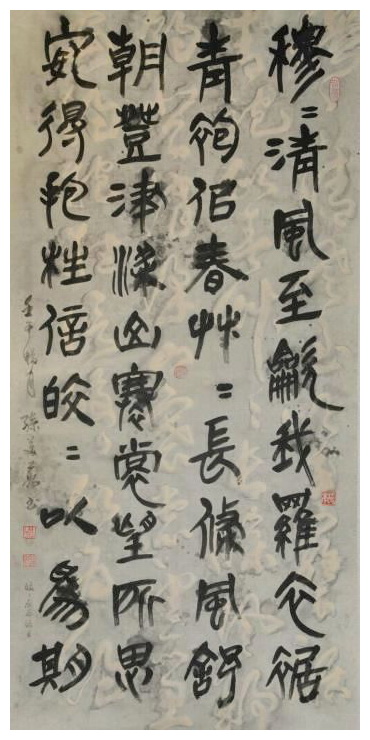 穆〻清風至龡我羅衣裾
青袍佀春艸〻長條風舒
朝登津梁山褰裳望所思
安得抱柱信皎〻以為期
壬午